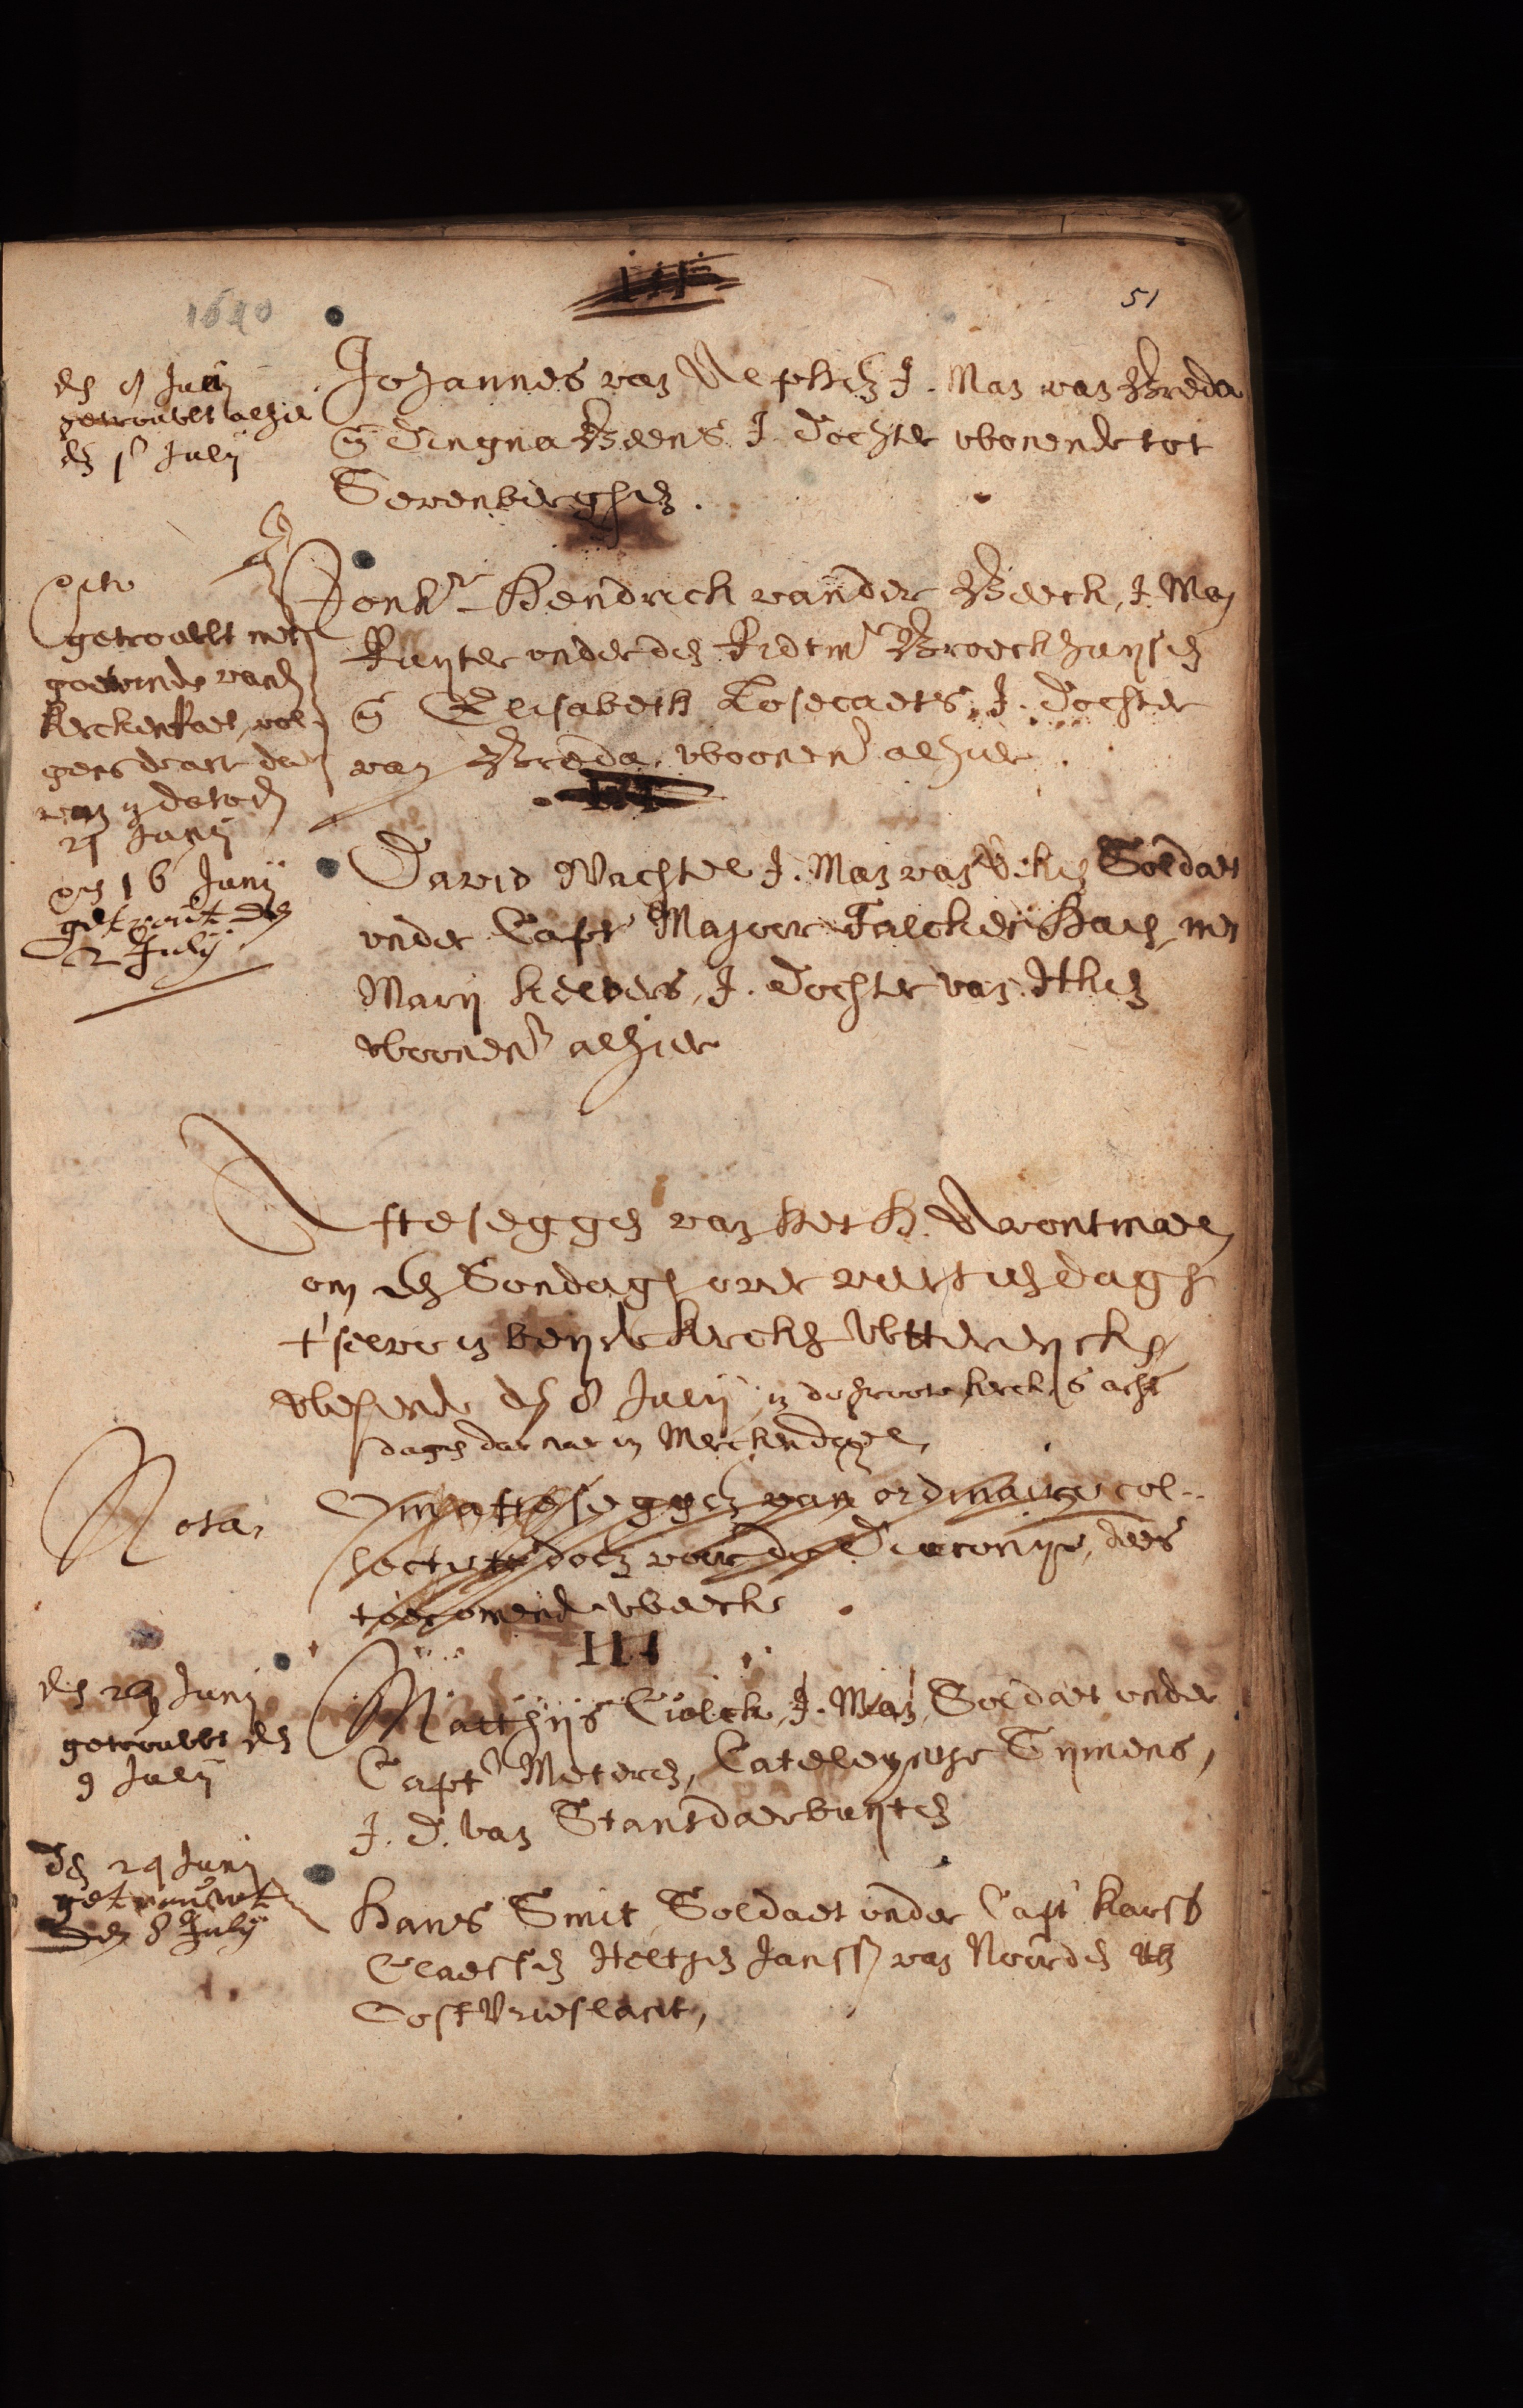 III
51
1640
den 9 Junij
getrouwt alhier
den 1 July
Johannes van Alphen J. Man van Breda
en Dingna Beens J. Dochter wonende tot
Sevenberghen.
dito
getrouwt met
goetvinde vanden
kerckenRaet, vol-
gens d'acte daer
van in dato den
21 Junij
Jonkr. Hendrick vander Beeck, J. Man
Ruyter onder den Ridtmr Broeckhuysen
en Elisabeth Losecaets, J. Dochter
van Breda, woonen alhier.
III
den 16 Junij
getrout den
2 July
David Wachtel J. Man van Soldaet
onder Capt Majoor Falckenhaen, met
Marij kelders, J. Dochter van
woonen alhier
Aftesegges van het H. Avontmael
om den Sondagh over veertien dagh
t'selve in beyde kercken uttereycken
wesende den 8 July in de groote kerck, & acht
dagen daer naer in Merckendael,
Nota,
Om aftesegges van ordinaire col-
lecte te doen voor de Diaconye, dees
toecomende weeck
III
den 24 Junij
getrouwt den
9 July
Matthijs Colck, J. Man, Soldaet onder
Capt Meteren, Cateleyntge Symens,
J. D. van Stantdaerbuyten
Den 24 Junij
getrouwt
Den 8 July
Hans Smit Soldaet onder Capt kars
Claessen Jansen van Noorden uth
Oost Vrieslant,